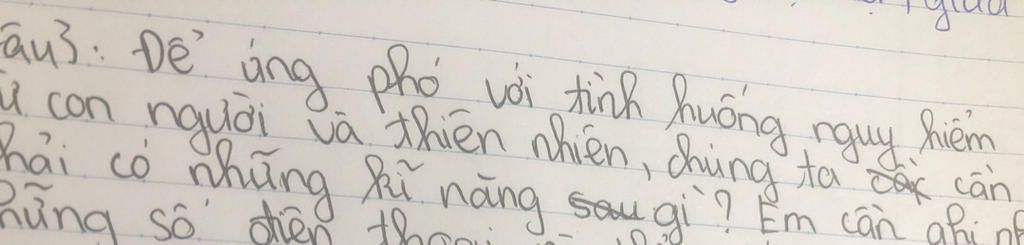 âu3: Để ứng phó với tình huống nguy hiểm
con người và thiên nhiên, chúng ta cần
hải có những kĩ năng gì? Em cần ghi
hững số điện